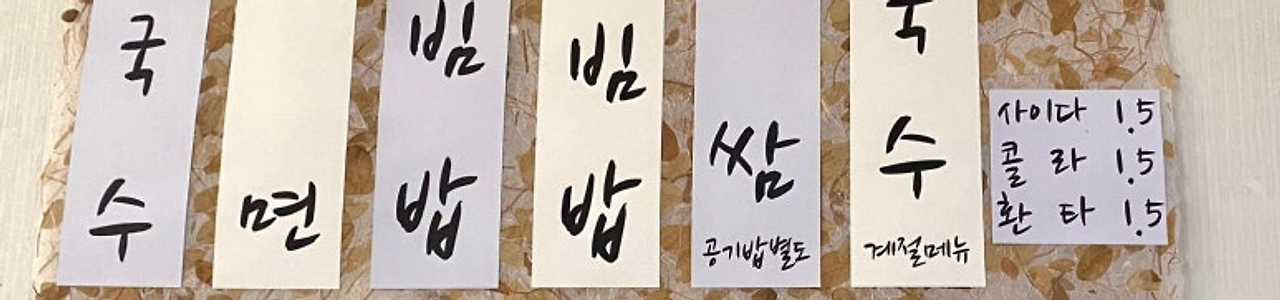 국수
면
빔밥
빔밥
쌈
공기밥별도
국수
계절메뉴
사이다 1.5
콜라 1.5
환타 1.5